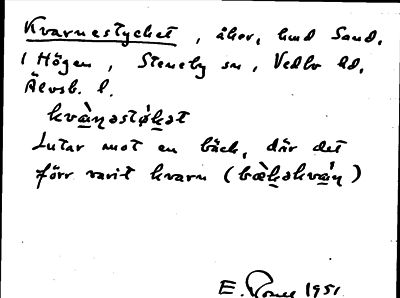 Kvarnestycket, åker, hmd Sand.
1 Högen, Steneby sn, Vedbo hd,
Älvsb. l.
kvàṇəstø̀kət
Lutar mot en bäck, där det
förr varit kvarn (bæ̀kəkvàṇ)
E. 1951